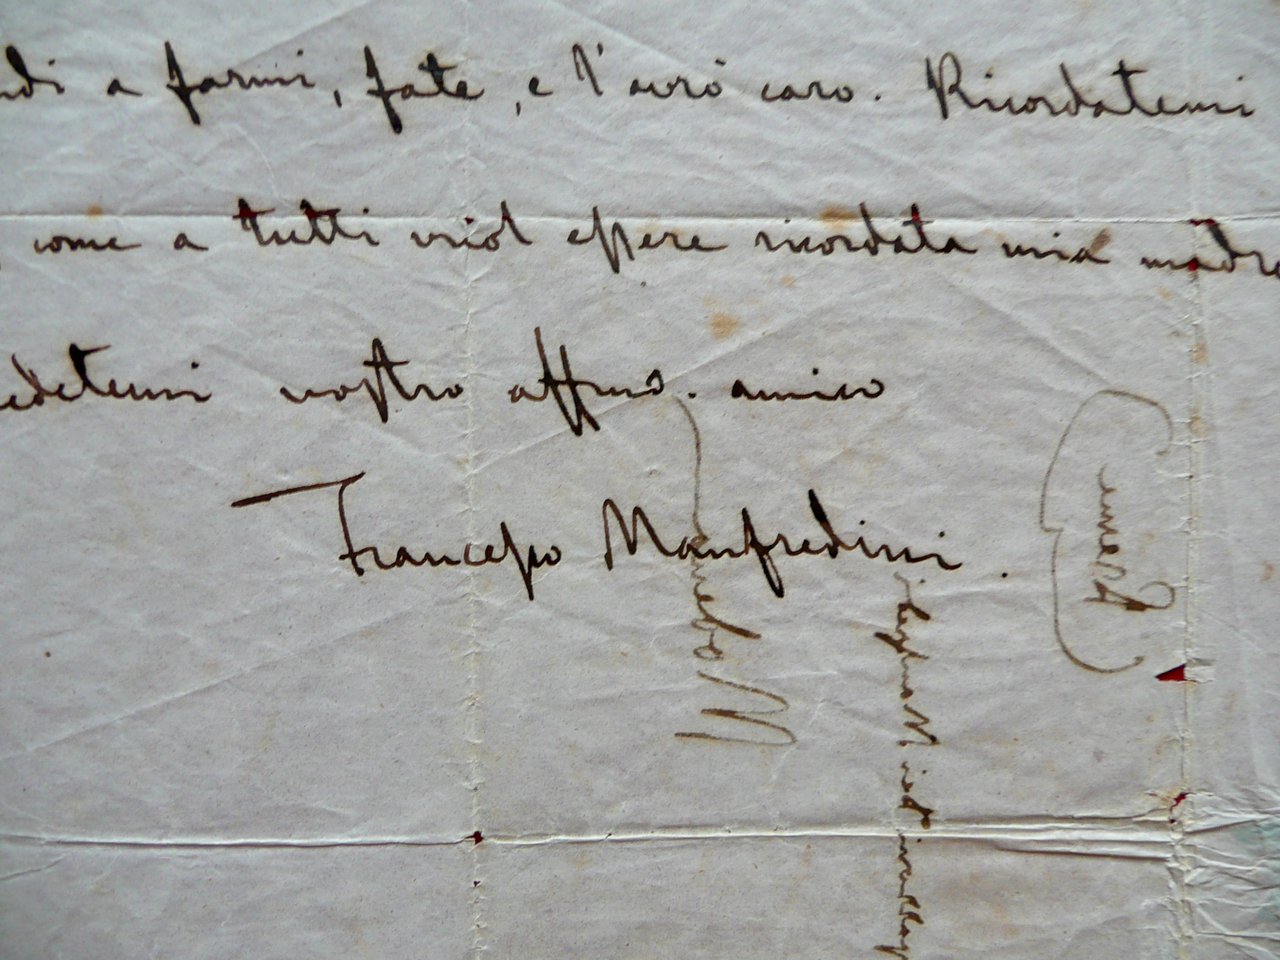 a farmi, fate, e l'avrò caro. Ricordatemi
come a tutti vuol essere ricordata mia madre
vostro affmo. amico
Francesco Manfredini.
Modena